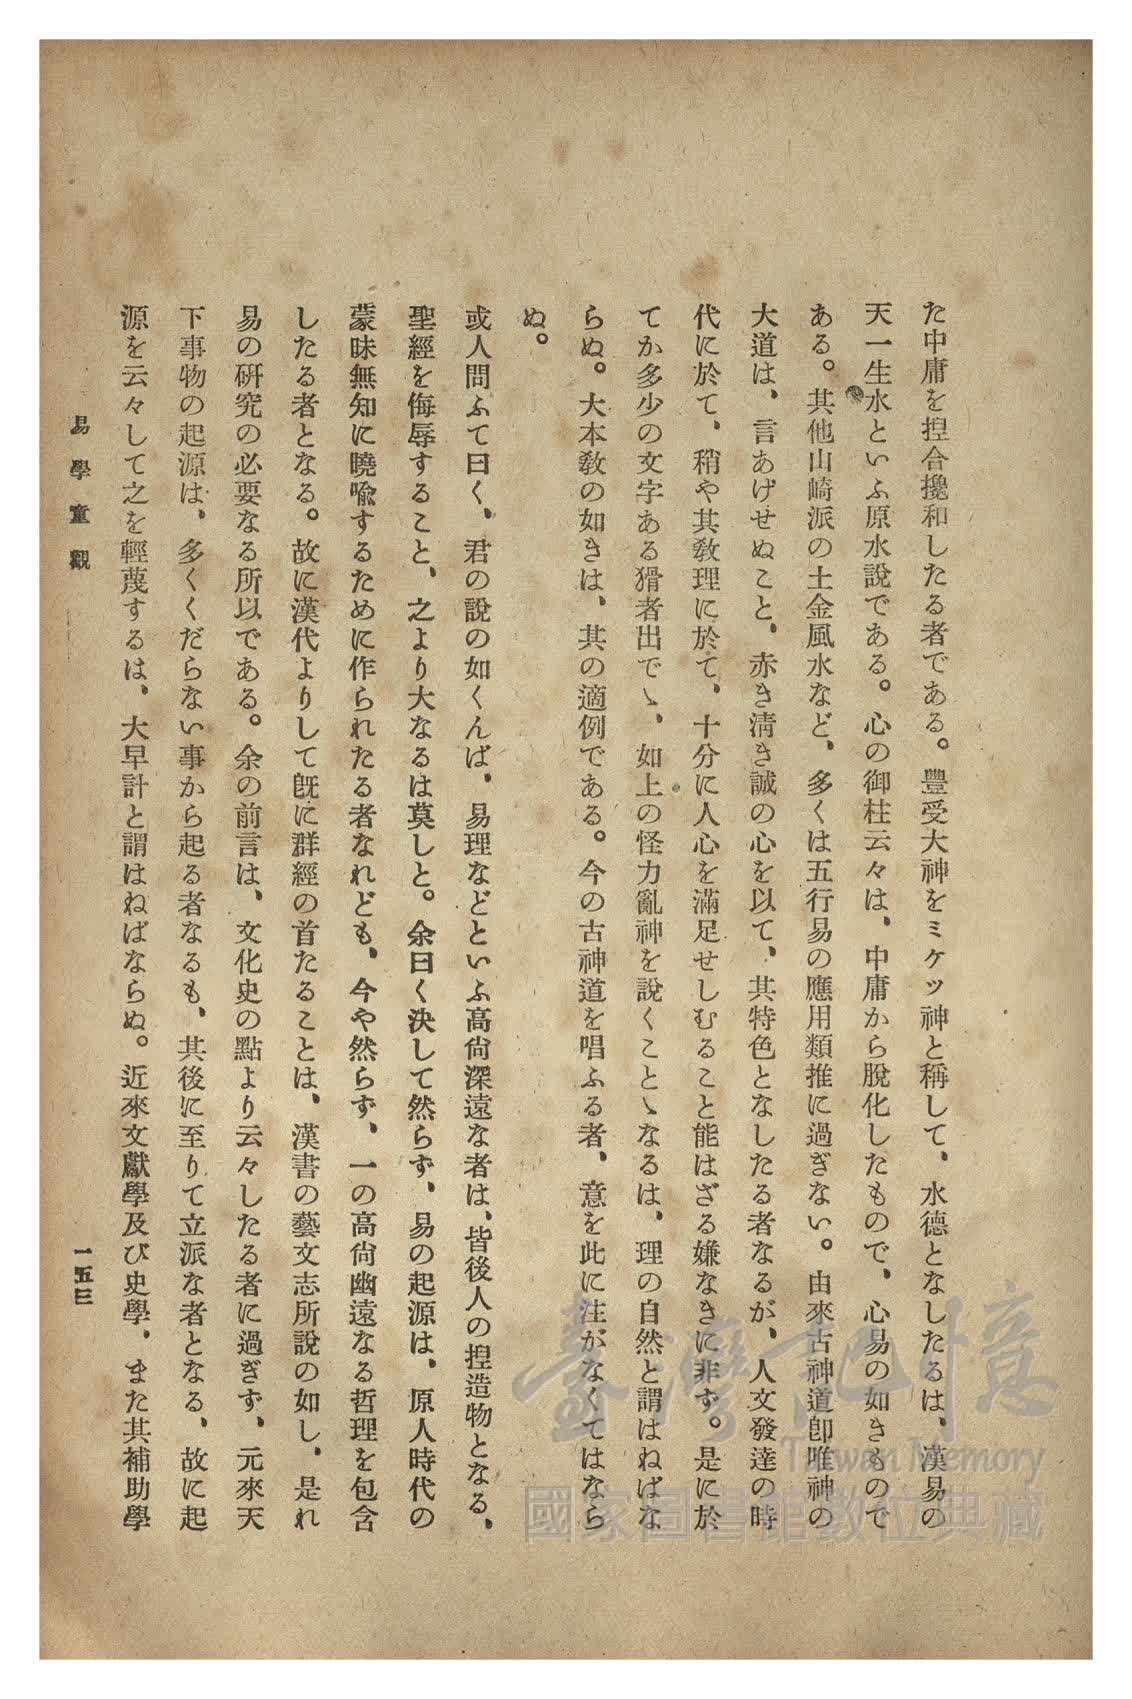 た中庸を揑合攙和したる者である。豐受大神をミケツ神と稱して、水德となしたるは、漢易の
天一生水といふ原水說である。心の御柱云々は、中庸から脫化したもので、心易の如きもので
ある。其他山崎派の土金風水など、多くは五行易の應用類推に過ぎない。由來古神道卽唯神の
大道は、言あげせぬこと、赤き淸き誠の心を以て、其特色となしたる者なるが、人文發達の時
代に於て、稍や其敎理に於て、十分に人心を滿足せしむること能はざる嫌なきに非ず。是に於
てか多少の文字ある猾者出でゝ、如上の怪力亂神を說くことゝなるは、理の自然と謂はねばな
らぬ。大本敎の如きは、其の適例である。今の古神道を唱ふる者、意を此に注がなくてはなら
ぬ。
或人問ふて曰く、君の說の如くんば、易理などといふ高尙深遠な者は、皆後人の揑造物となる、
聖經を侮辱すること、之より大なるは莫しと。余曰く決して然らず、易の起源は、原人時代の
蒙昧無知に曉喩するために作られたる者なれども、今や然らず、一の高尙幽遠なる哲理を包含
したる者となる。故に漢代よりして旣に群經の首たることは、漢書の藝文志所說の如し、是れ
易の硏究の必要なる所以である。余の前言は、文化史の點より云々したる者に過ぎず、元來天
下事物の起源は、多くくだらない事から起る者なるも、其後に至りて立派な者となる、故に起
源を云々して之を輕蔑するは、大早計と謂はねばならぬ。近來文獻學及び史學、また其補助學
易學童觀
一五三
臺灣記憶
Taiwan Memory
國家圖書館數位典藏